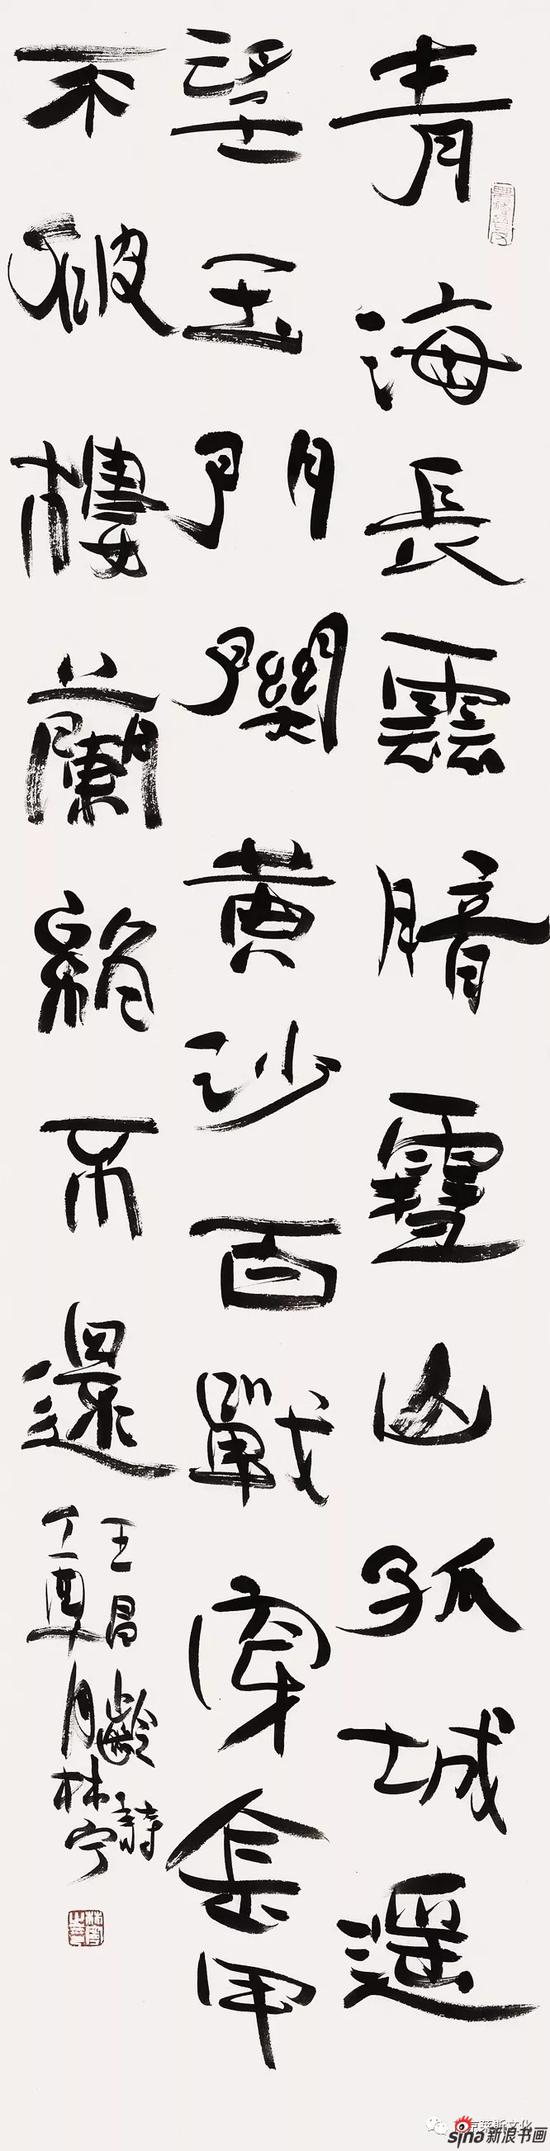 青海長雲暗雪山孤城遥
望玉門關黄沙百戰穿金甲
不破樓蘭終不還
王昌齡詩
丁酉月林宁
莱斯文化
sina新浪书画